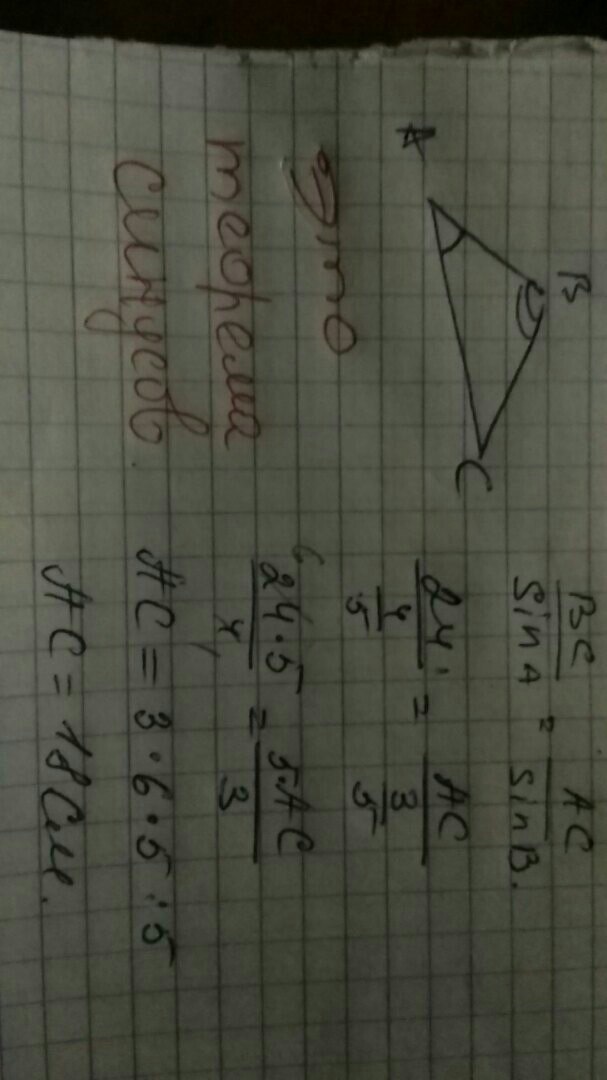 B
A
C
Это
теорема
синусов
BC/sin A = AC/sin B.
24/(4/5) = AC/(3/5)
6
24·5/4 = 5·AC/3
1
AC = 3·6·5:5
AC = 18 см.